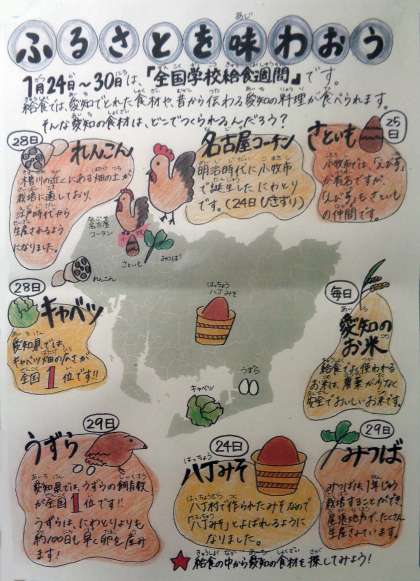 ふるさとを味わおう
1月24日～30日は、『全国学校給食週間』です。
給食では、愛知でとれた食材や、昔から伝わる愛知の料理が食べられます。
そんな愛知の食材は、どこでつくられるんだろう？
28日
れんこん
木曽川の近くにある畑の土が
栽培に適しており、
江戸時代から
生産されるように
なりました。
名古屋コーチン
明治時代に小牧市
で誕生したにわとり
です。(24日 ひきずり)
25日
さといも
小牧市では、
が有名ですが、
さといも
の仲間です。
名古屋
コーチン
さといも
みつば
れんこん
28日
キャベツ
愛知県では、
キャベツ畑の広さが
全国1位です!!
はっちょう
八丁みそ
うずら
キャベツ
毎日
愛知の
お米
給食で使われる
お米は、農薬が少なく
安全でおいしいお米です。
29日
うずら
愛知県では、うずらの飼育数
が全国1位です!!
うずらは、にわとりよりも
約100日も早く卵を産み
ます！
24日
はっちょう
八丁みそ
八丁村で作られたみそなので
「八丁みそ」とよばれるように
なりました。
29日
みつば
みつばは、1年じゅう
栽培することができ、
尾張地方で、たくさん
生産されています。
★給食の中から愛知の食材を探してみよう！